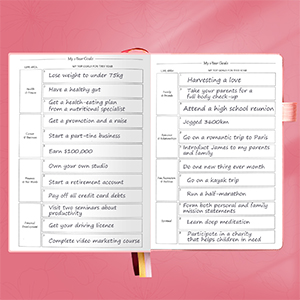 My 1-Year Goals
Lose weight to under 75kg
Have a healthy gut
Get a health-eating plan
from a nutritional specialist
Get a promotion and a raise
Start a part-tine business
Earn $100,000
Own your own studio
Start a retirement account
Pay off all credit card debts
Visit two seminars about
productivity
Get your driving licence
Complete video marketing course
My 1-Year Goals
Harvesting a love
Take your parents for a
full body check-up
Attend a high school reunion
Jogged 3600km
Go on a romantic trip to Paris
Introduct James to my parents
and family
Do one new thing ever month
Go on a kayak trip
Run a half-marathon
Form both personal and family
mission statements
Learn deep meditation
Participate in a charity
that helps children in need